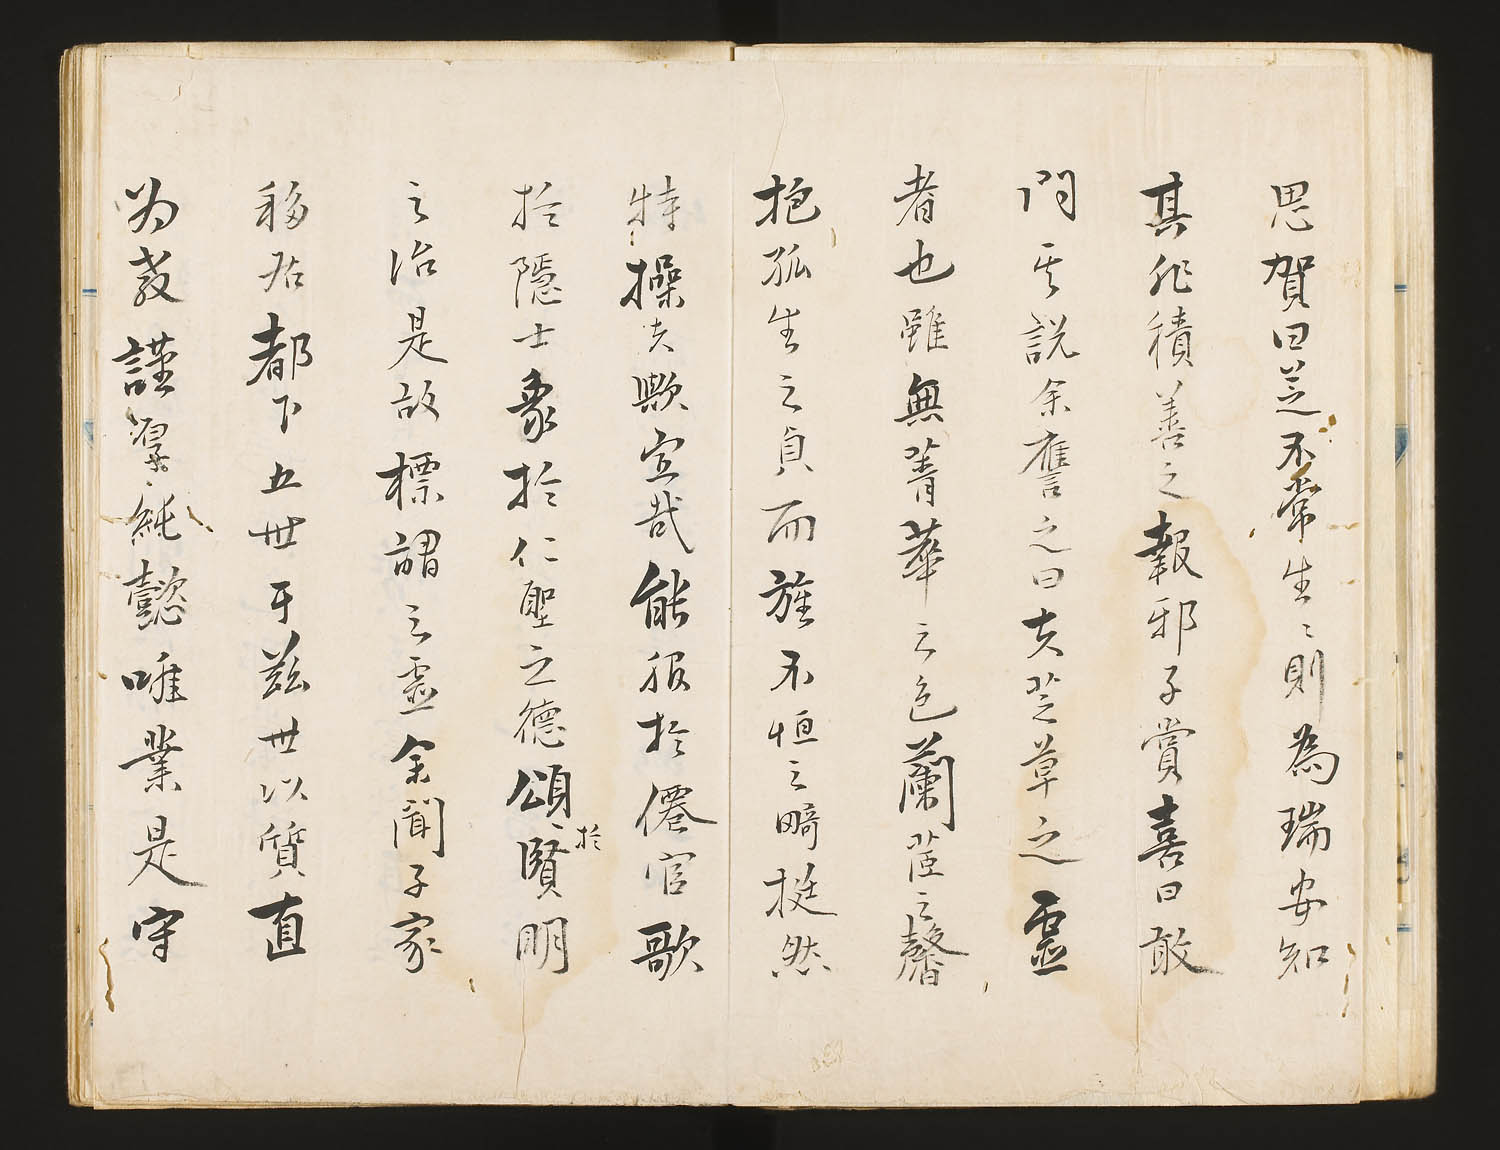 思賀曰芝不常生〻則為瑞安知
其非積善之報邪子賞喜曰敢
問其説余應之曰夫芝草之靈
者也雖無菁華之色蘭茝之馨
抱孤生之貞而族不恒之疇挺然
特操夫歟宜哉能服於僊官歌
於隱士象於仁聖之德頌〻賢明
於
之治是故標謂之靈余聞子家
移居都下五世于茲世以質直
为教謹純懿唯業是守